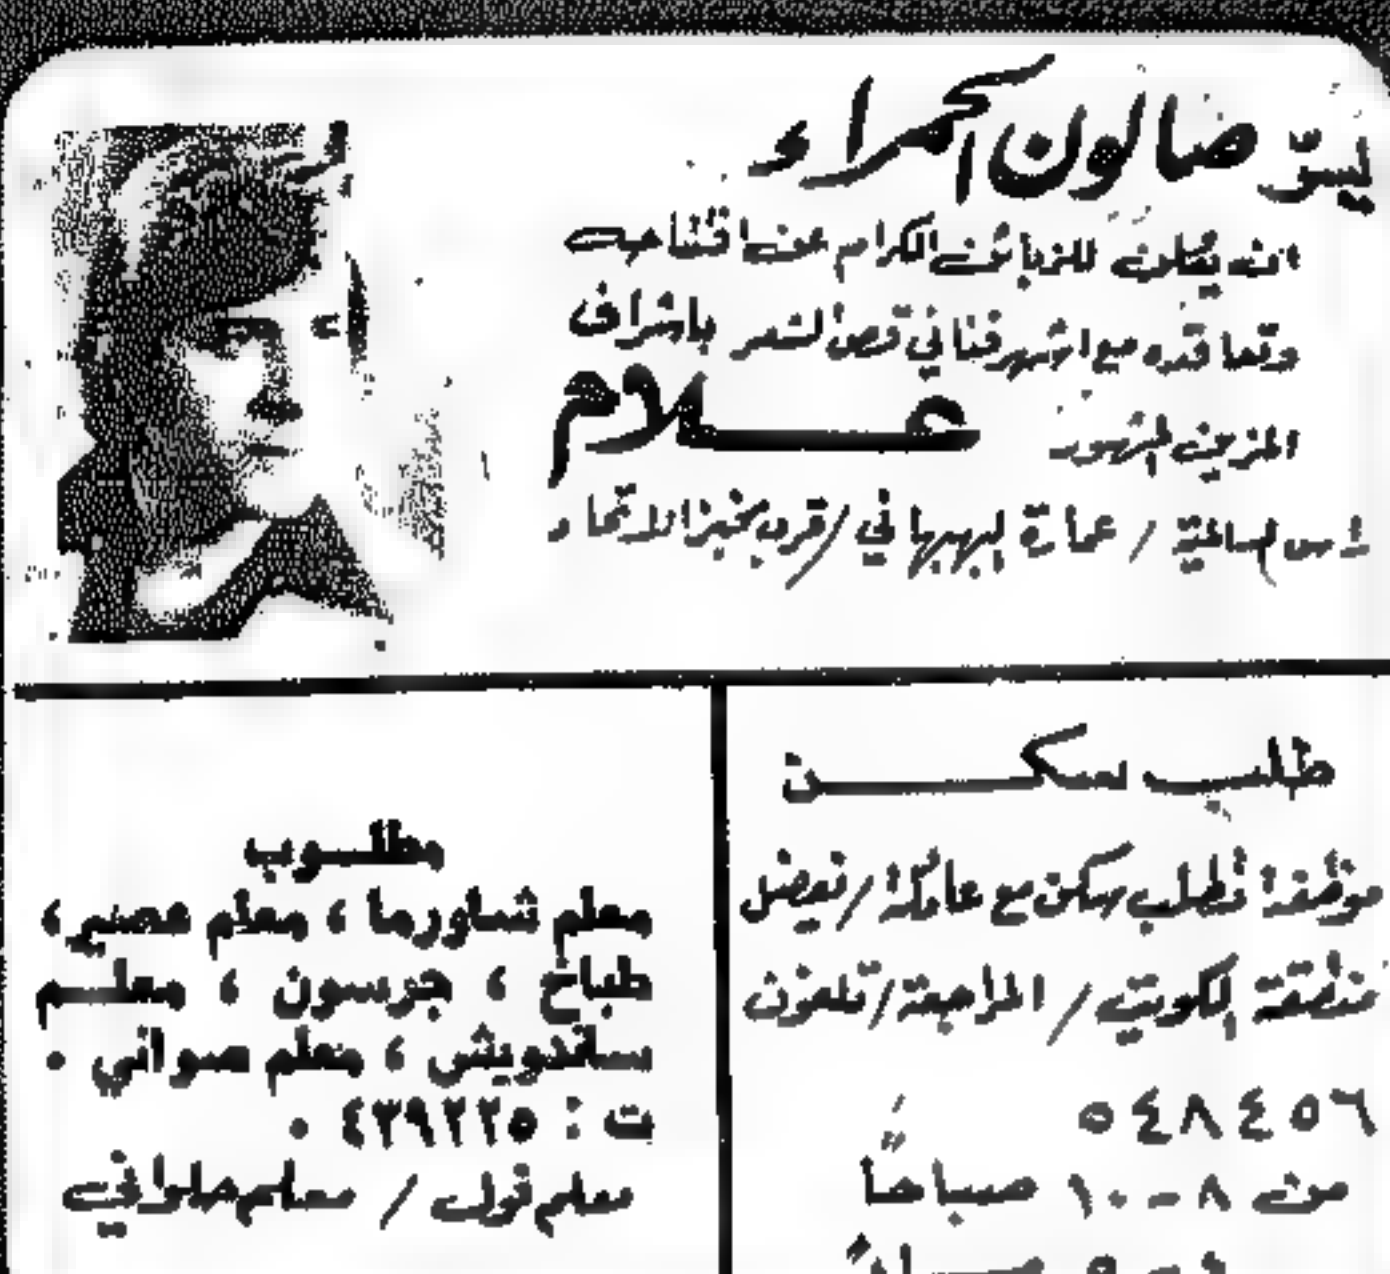 يسرّ صالون الحمراء
ان يعلن للزبائن الكرام عن افتتاحه
وتعاقده مع اشهر فناني قص الشعر باشراف
المزين المشهور علام
راس السالمية / عمارة البهبهاني / قرب مخبز الاتحاد
طلب سكن
موظفة تطلب سكن مع عائلة / تفضل
منطقة الكويت / المراجعة / تلفون
٥٤٨٤٥٦
من ٨ - ١٠ صباحاً
مطلوب
معلم شاورما ، معلم عصير ،
طباخ ، جرسون ، معلم
سندويش ، معلم صواني .
ت : ٤٣٩٢٢٥ .
معلم فول / معلم حلواني